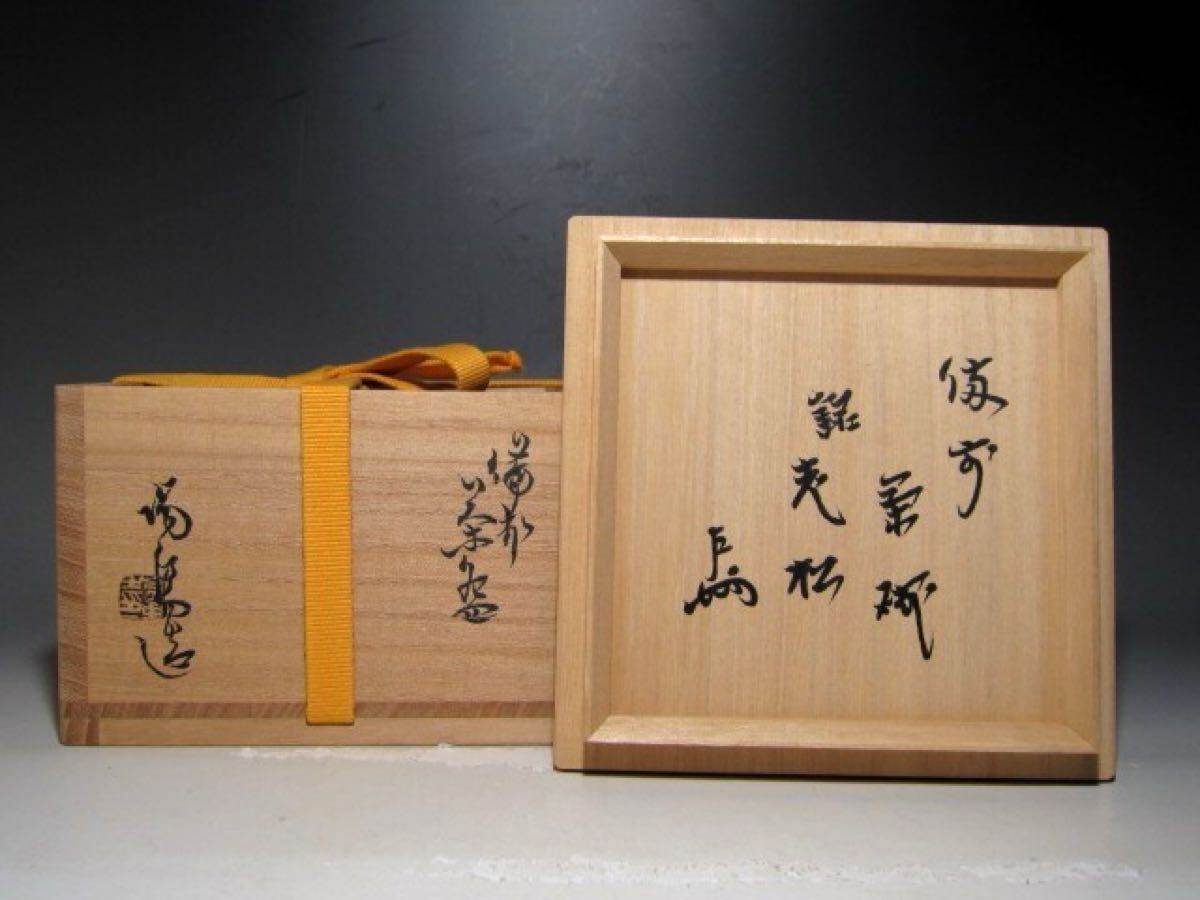 備前
茶碗
銘
老松
備前
茶碗
陽景造